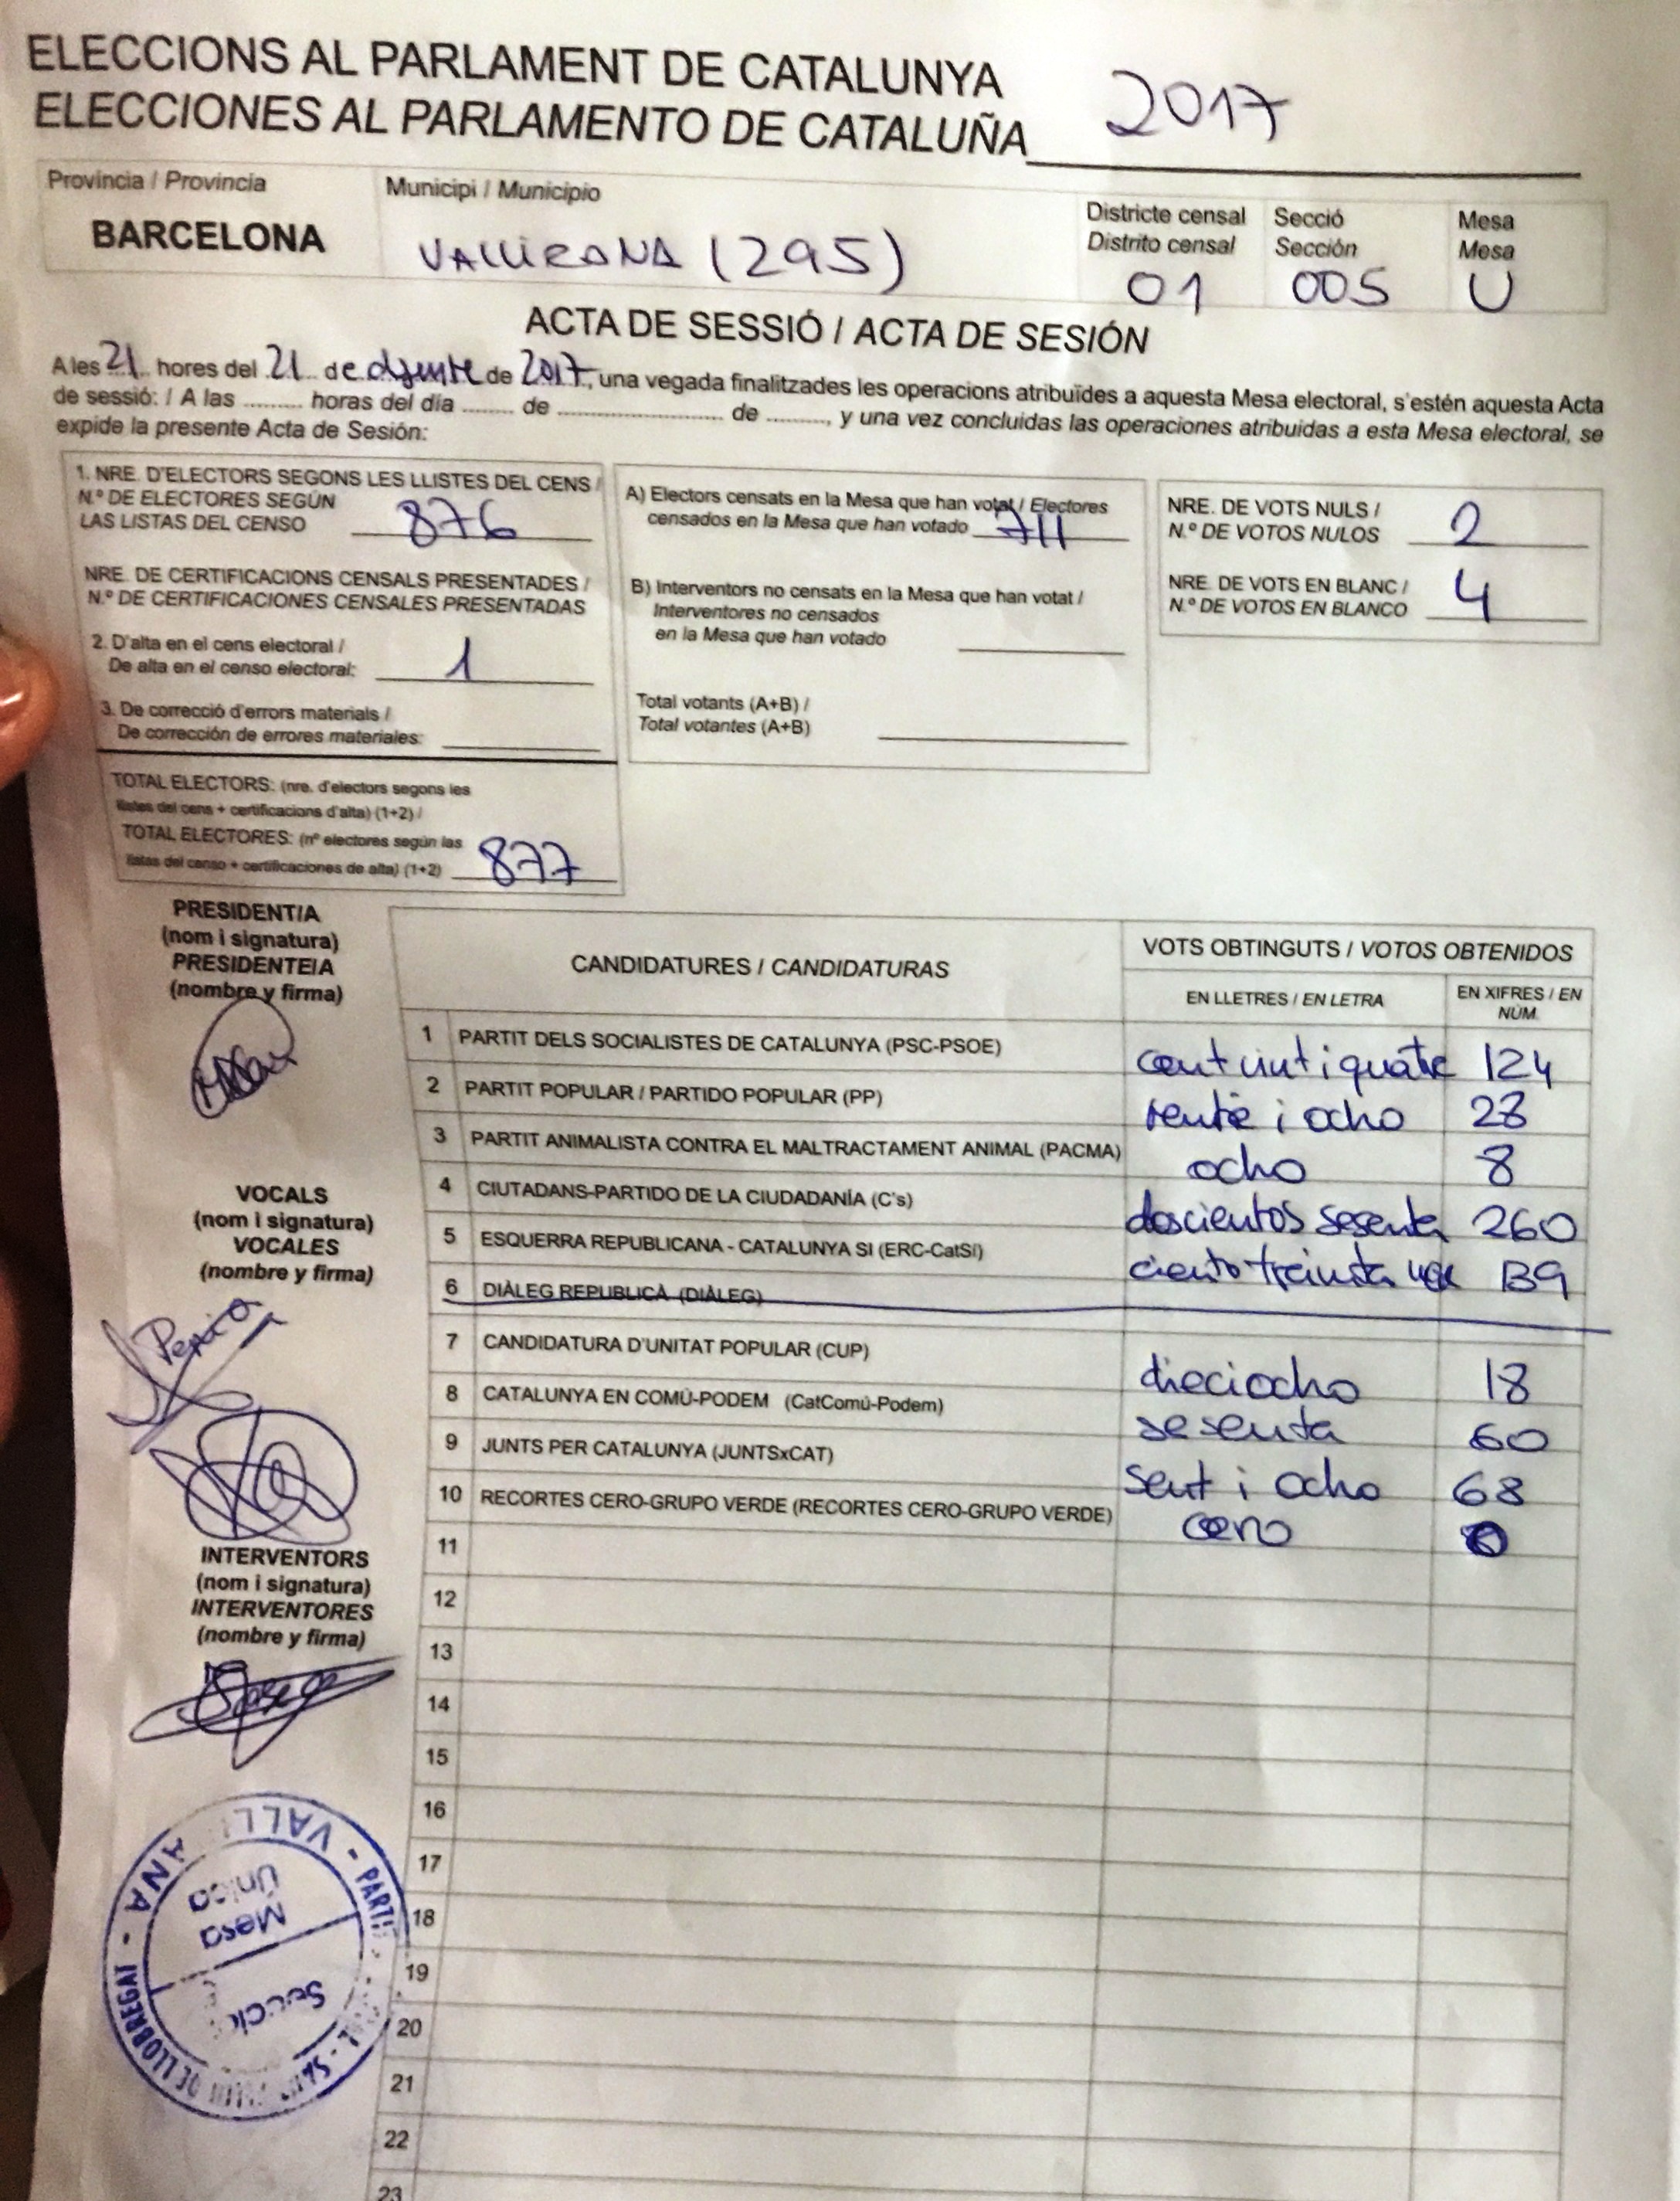 ELECCIONS AL PARLAMENT DE CATALUNYA
ELECCIONES AL PARLAMENTO DE CATALUÑA 2017
Provincia / Provincia
BARCELONA
Municipi / Municipio
VALLIRANA (295)
Districte censal
Distrito censal
01
Secció
Sección
005
Mesa
Mesa
U
ACTA DE SESSIÓ / ACTA DE SESIÓN
A les 21 hores del 21 de de 2017, una vegada finalitzades les operacions atribuïdes a aquesta Mesa electoral, s'estén aquesta Acta
de sessió: / A las ......... horas del día ........ de .......................... de ........., y una vez concluidas las operaciones atribuidas a esta Mesa electoral, se
expide la presente Acta de Sesión:
1. NRE. D'ELECTORS SEGONS LES LLISTES DEL CENS /
N.º DE ELECTORES SEGÚN
LAS LISTAS DEL CENSO 876
NRE. DE CERTIFICACIONS CENSALS PRESENTADES /
N.º DE CERTIFICACIONES CENSALES PRESENTADAS
2. D'alta en el cens electoral /
De alta en el censo electoral: 1
3. De correcció d'errors materials /
De corrección de errores materiales:
TOTAL ELECTORS: (nre. d'electors segons les
llistes del cens + certificacions d'alta) (1+2) /
TOTAL ELECTORES: (nº electores según las
listas del censo + certificaciones de alta) (1+2) 877
A) Electors censats en la Mesa que han votat / Electores
censados en la Mesa que han votado 711
B) Interventors no censats en la Mesa que han votat /
Interventores no censados
en la Mesa que han votado
Total votants (A+B) /
Total votantes (A+B)
NRE. DE VOTS NULS /
N.º DE VOTOS NULOS 2
NRE. DE VOTS EN BLANC /
N.º DE VOTOS EN BLANCO 4
PRESIDENT/A
(nom i signatura)
PRESIDENTE/A
(nombre y firma)
VOCALS
(nom i signatura)
VOCALES
(nombre y firma)
INTERVENTORS
(nom i signatura)
INTERVENTORES
(nombre y firma)
CANDIDATURES / CANDIDATURAS
VOTS OBTINGUTS / VOTOS OBTENIDOS
EN LLETRES / EN LETRA
EN XIFRES / EN
NÚM.
1 PARTIT DELS SOCIALISTES DE CATALUNYA (PSC-PSOE) cent vint i quatre 124
2 PARTIT POPULAR / PARTIDO POPULAR (PP) i ocho 28
3 PARTIT ANIMALISTA CONTRA EL MALTRACTAMENT ANIMAL (PACMA) ocho 8
4 CIUTADANS-PARTIDO DE LA CIUDADANÍA (C's) doscientos sesenta 260
5 ESQUERRA REPUBLICANA - CATALUNYA SI (ERC-CatSí) ciento treinta 139
6 DIÀLEG REPUBLICÀ (DIÀLEG)
7 CANDIDATURA D'UNITAT POPULAR (CUP) dieciocho 18
8 CATALUNYA EN COMÚ-PODEM (CatComú-Podem) sesenta 60
9 JUNTS PER CATALUNYA (JUNTSxCAT) i ocho 68
10 RECORTES CERO-GRUPO VERDE (RECORTES CERO-GRUPO VERDE) cero 0
11
12
13
14
15
16
17
18
19
20
21
22
23
VALL ANA - PARTI
DE LLOBREGAT
Mesa
Única
Secció